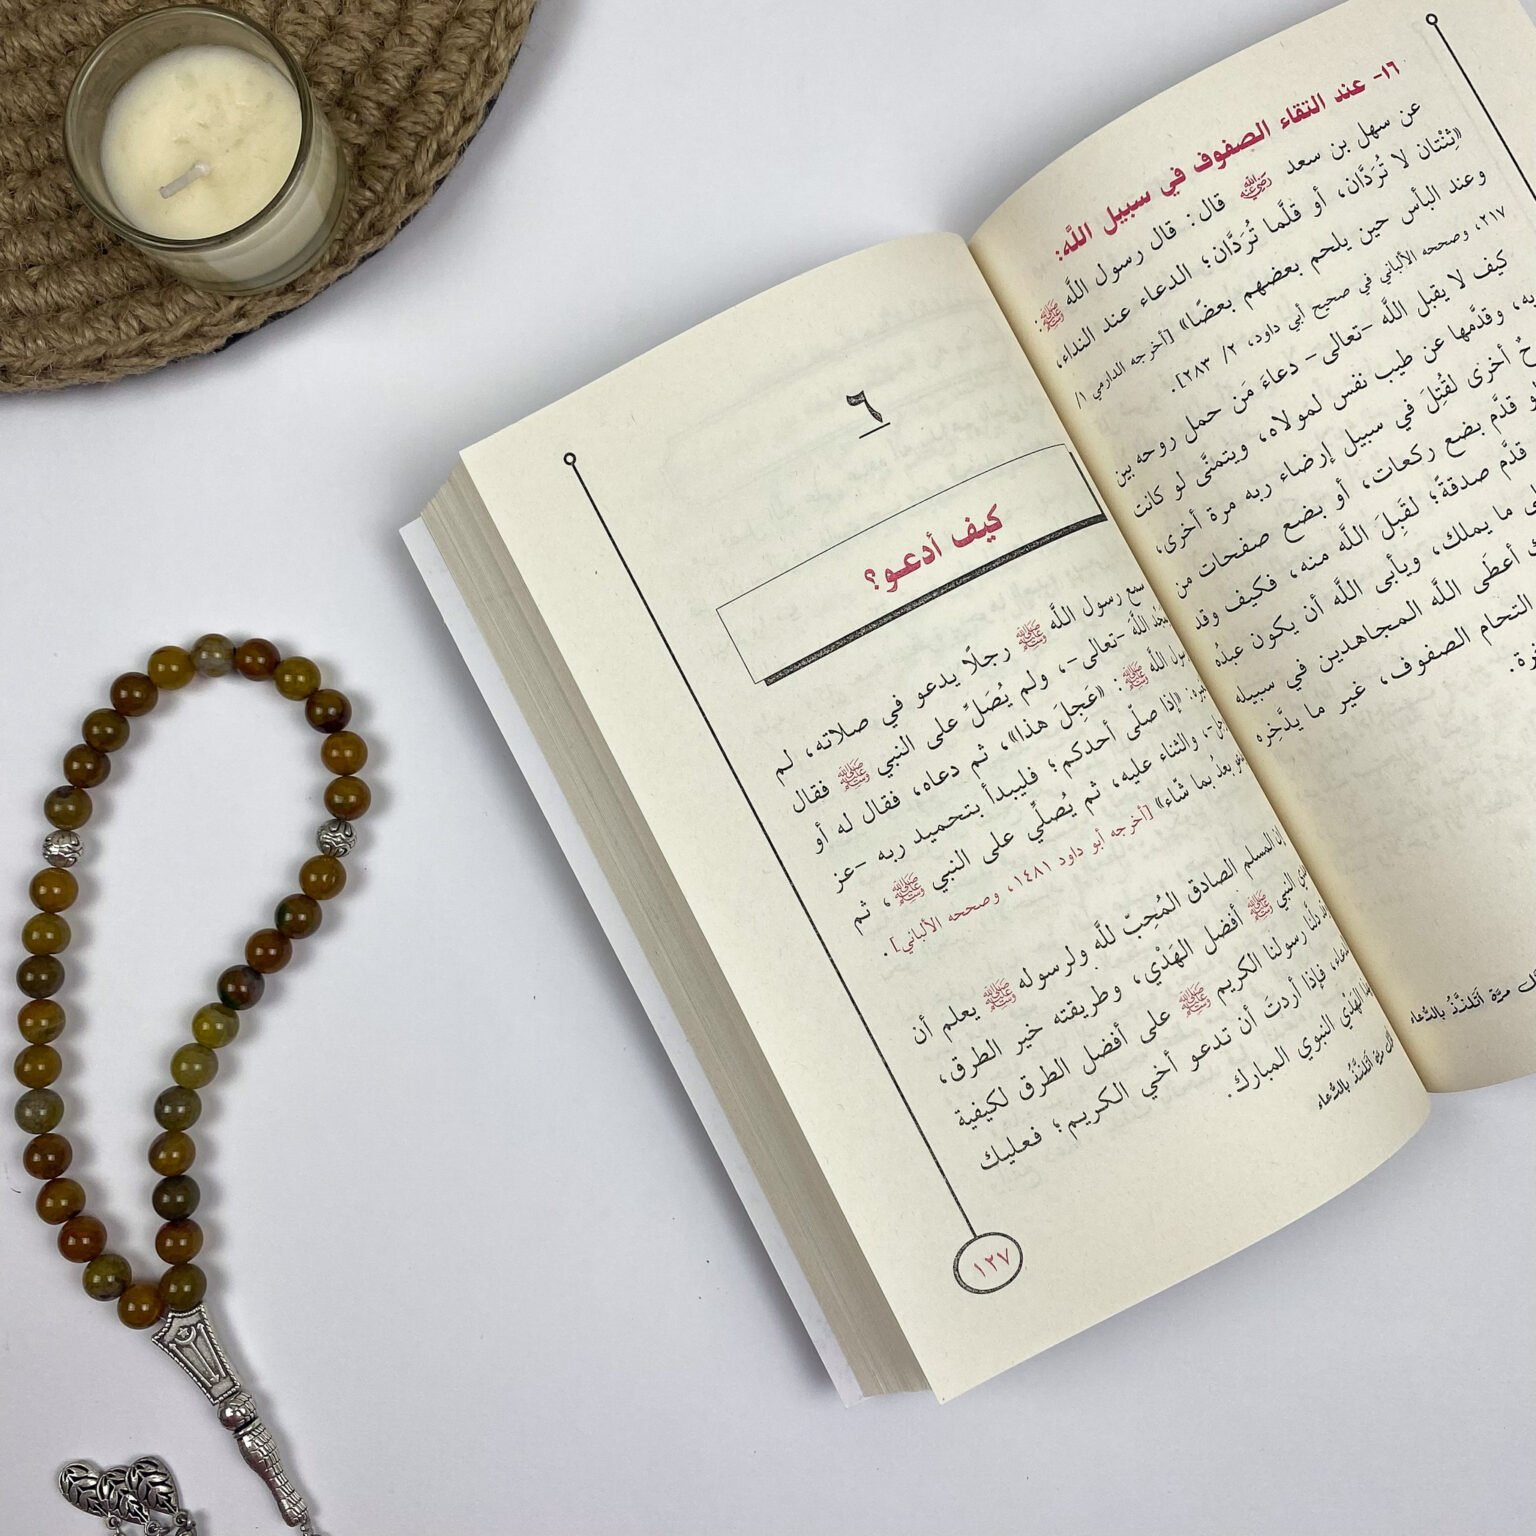 ١٦- عند التقاء الصفوف في سبيل اللَّه:
عن سهل بن سعد رضي الله عنه قال: قال رسول اللَّه ﷺ:
«ثِنْتان لا تُرَدَّان، أو قلَّما تُرَدَّان؛ الدعاء عند النداء،
وعند البأس حين يلحم بعضهم بعضًا» [أخرجه الدارمي ١/
٢١٧، وصححه الألباني في صحيح أبي داود، ٢/ ٢٨٣].
كيف لا يقبل اللَّه -تعالى- دعاءَ مَن حمل روحه بين
وقدَّمها عن طيب نفس لمولاه، ويتمنَّى لو كانت
أخرى لقُتِلَ في سبيل إرضاء ربه مرة أخرى،
قدَّم بضع ركعات، أو بضع صفحات من
قدَّم صدقةً؛ لقَبِلَ اللَّه منه، فكيف وقد
ما يملك، ويأبى اللَّه أن يكون عبدُه
أعطَى اللَّه المجاهدين في سبيله
التحام الصفوف، غير ما يدَّخِره
مرَّة أتلذَّذُ بالدُّعاء
٦
كيف أدعو؟
سمع رسول اللَّه ﷺ رجلًا يدعو في صلاته، لم
اللَّهَ -تعالى-، ولم يُصَلِّ على النبي ﷺ فقال
رسول اللَّه ﷺ: «عَجِلَ هذا»، ثم دعاه، فقال له أو
«إذا صلّى أحدكم؛ فليبدأ بتحميد ربه -عز
والثناء عليه، ثم يُصلِّي على النبي ﷺ، ثم
بعدُ بما شاء» [أخرجه أبو داود ١٤٨١، وصححه الألباني].
إن المسلم الصادق المُحِبّ للَّه ولرسوله ﷺ يعلم أن
النبي ﷺ أفضل الهَدْي، وطريقته خير الطرق،
رسولنا الكريم ﷺ على أفضل الطرق لكيفية
فإذا أردتَ أن تدعو أخي الكريم؛ فعليك
الهَدْي النبوي المبارك.
مرَّة أتلذَّذُ بالدُّعاء
١٢٧